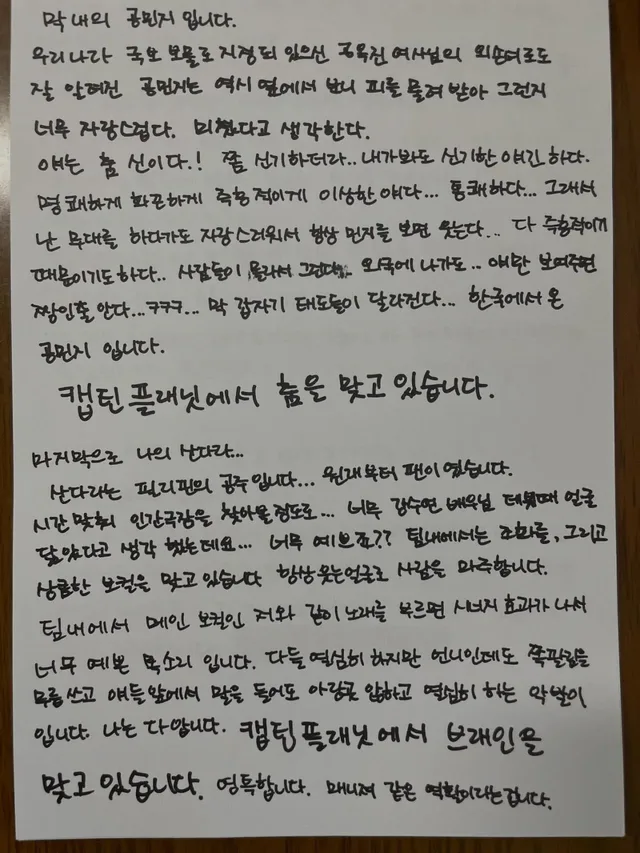 막내의 공민지 입니다.
우리나라 국보 보물로 지정되 있으신 공옥진 여사님의 외손녀로도
잘 알려진 공민지는 역시 옆에서 보니 피를 물려 받아 그런지
너무 자랑스럽다. 미쳤다고 생각한다.
얘는 춤 신이다.! 쫌 신기하더라.. 내가봐도 신기한 얘긴 하다.
명쾌하게 화끈하게 즉흥적이게 이상한 얘다... 통쾌하다... 그래서
난 무대를 하다가도 자랑스러워서 항상 민지를 보면 웃는다... 다 즉흥적이기
때문이기도하다.. 사람들이 몰라서 그런다.. 외국에 나가도.. 얘만 보여주면
짱인줄 안다...ㅋㅋㅋ... 막 갑자기 태도들이 달라진다... 한국에서 온
공민지 입니다.
캡틴플래닛에서 춤을 맞고 있습니다.
마지막으로 나의 산다라...
산다라는 필리핀의 공주입니다... 원래부터 팬이였습니다.
시간맞춰 인간극장을 찾아볼정도로... 너무 강수연 배우님 데뷔때 얼굴
닮았다고 생각 했는데요... 너무 예쁘죠?? 팀내에서는 조화를, 그리고
상큼한 보컬을 맞고 있습니다 항상웃는얼굴로 사람을 마주합니다.
팀내에서 메인 보컬인 저와 같이 노래를 부르면 시너지 효과가 나서
너무 예쁜 목소리 입니다. 다들 열심히 하지만 언니인데도 쪽팔림을
무릅쓰고 얘들앞에서 말을 들어도 아랑곳 않하고 열심히 하는 악발이
입니다. 나는 다 압니다. 캡틴플래닛에서 브레인을
맞고있습니다. 영특합니다. 매니져 같은 역활이라는겁니다.